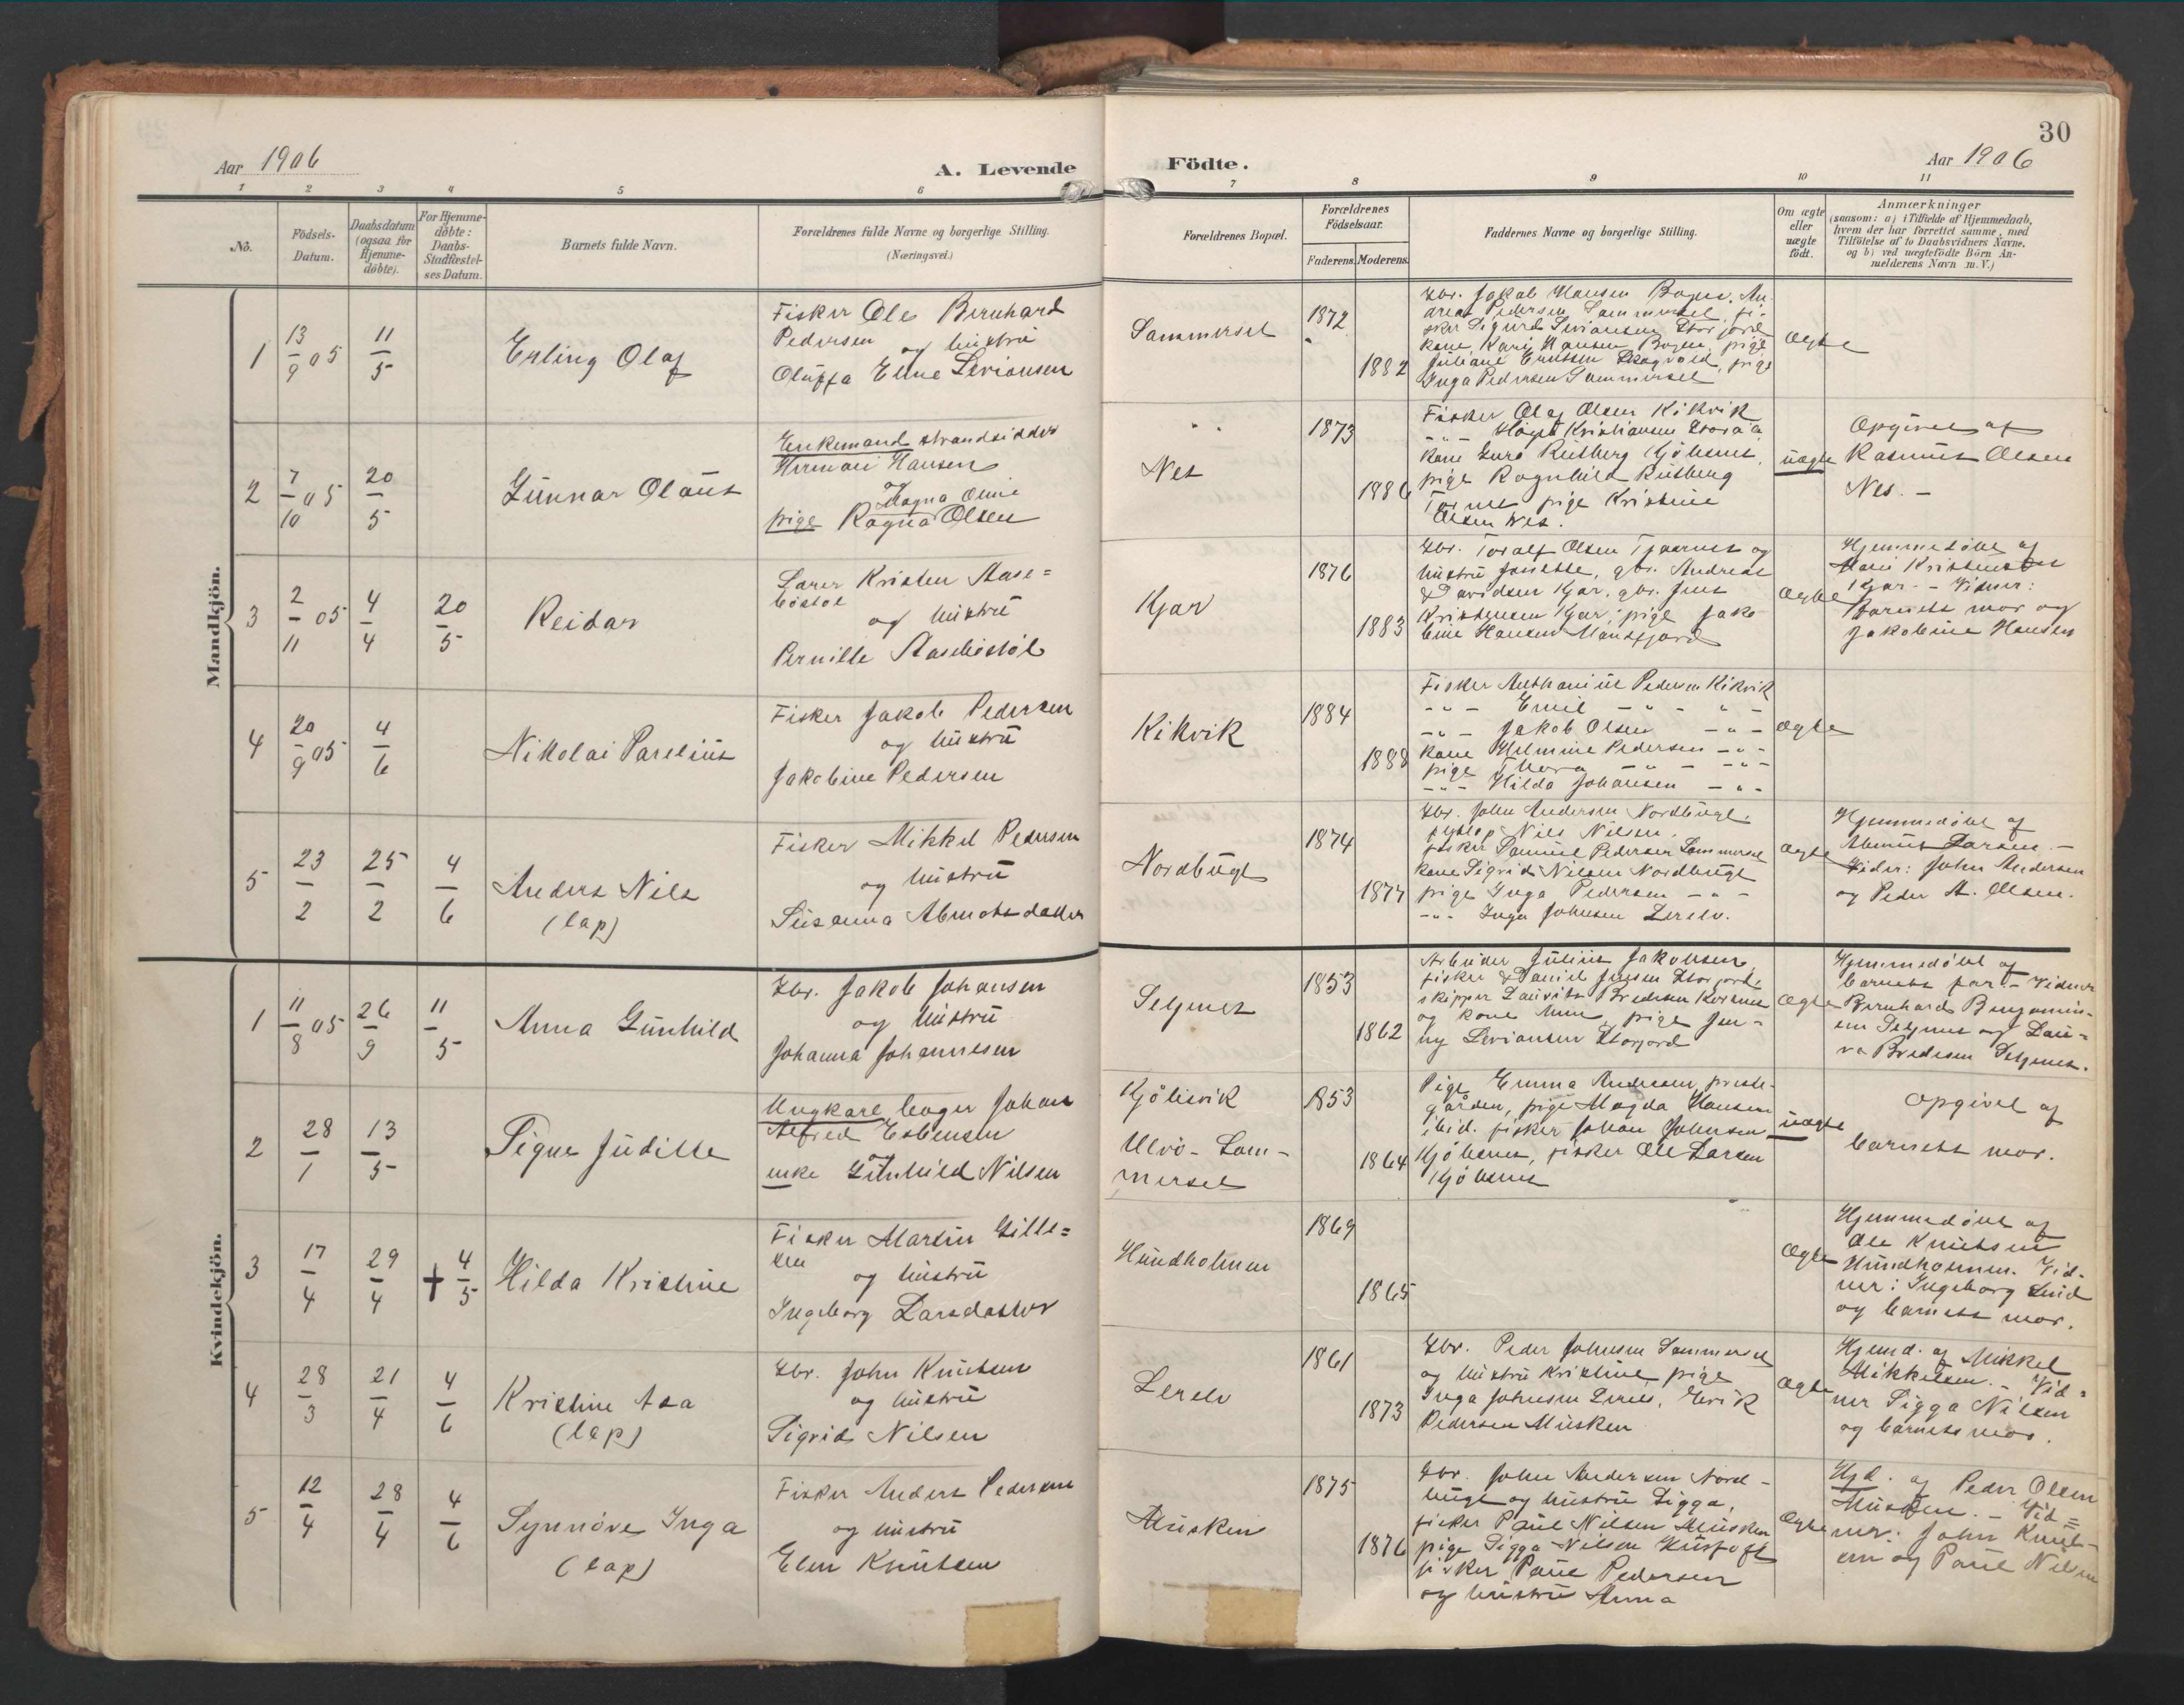 30
Aar 1906
A. Levende
Födte.
Aar 1906
1 2 3 4 5 6 7 8 9 10 11
No.
Födsels-
Datum.
Daabsdatum
(ogsaa for
Hjemme-
döbte).
For Hjemme-
döbte:
Daabs-
Stadfæstel-
ses Datum.
Barnets fulde Navn.
Forældrenes fulde Navne og borgerlige Stilling.
(Næringsvei.)
Forældrenes Bopæl.
Forældrenes
Födselsaar.
Faderens.
Moderens.
Faddernes Navne og borgerlige Stilling.
Om ægte
eller
uægte
födt.
Anmærkninger
(saasom: a) i Tilfælde af Hjemmedaab,
hvem der har forrettet samme, med
Tilföielse af to Daabsvidners Navne,
og b) ved uægtefödte Börn An-
melderens Navn m. V.)
Mandkjön.
1
13/9 05
11/5
Erling Olaf
Fisker Ole Bernhard
Pedersen og hustru
Oluffa Eline Sivriansen
Sammerset
1872
1882
Gbr. Jakob Hansen Bogen, An-
dreas Pedersen Sammerset, fi-
sker Sigurd Sivriansen Storjord
kone Kari Hansen Bogen, pige
Juliane Enussen Skogvold, pige
Inga Pedersen Sammerset
ægte
2
7/10 05
20/5
Gunnar Olaus
Enkemand strandsidder
Herman Hansen
og
Magna Oline
pige Ragna Olsen
" "
Nes
1873
1886
Fisker Olaf Olsen Kikvik
- " - Kristiansen Storaa
kone Guro Rutberg Kjöbsnes,
pige Ragnhild Rutberg
pige Kristine
Olsen Nes.
uægte
Opgivet af
Rasmus Olsen
Nes. -
3
2/11 05
4/4
20/5
Reidar
Lærer Kristen Aase=
böstöl
og hustru
Pernille Aaseböstöl
Kjær
1876
1883
Gbr. Toralf Olsen Tjaarnes og
hustru Josette, gbr. Andreas
Davidsen Kjær, gbr. Jens
Kristensen Kjær, pige Jako-
bine Hansen Mandfjord
ægte
Hjemmedöbt af
Kristensen
Kjær. - Vidner:
Barnets mor og
Jakobine Hansen
4
20/9 05
4/6
Nikolai Parelius
Fisker Jakob Pedersen
og hustru
Jakobine Pedersen
Kikvik
1884
1888
Fisker Anthonius Pedersen Kikvik
- " - Emil - " - - " -
- " - Jakob Olsen - " -
kone Hilmine Pedersen - " -
pige Thora - " - - " -
- " - Hilda Johansen - " -
ægte
5
23/2
25/2
4/6
Anders Nils
(lap)
Fisker Mikkel Pedersen
og hustru
Susanna Abmutsdatter
Nordbugt
1874
1877
Gbr. John Andersen Nordbugt.
Nils Nilsen.
fisker Samuel Pedersen Sammerset
kone Sigrid Nilsen Nordbugt
pige Inga Pedersen - " -
- " - Inga Johnsen Lerelv.
ægte
Hjemmedöbt af
Abmut Larsen. -
Vidner: John Andersen
og Peder A. Olsen.
Kvindekjön.
1
11/8 05
26/9
11/5
Anna Gunhild
Gbr. Jakob Johansen
og hustru
Johanna Johannesen
Seljenes
1853
1862
Arbeider Julius Jakobsen,
fisker Daniel Jensen Storjord,
skipper Lauritz Bredesen Korsnes
og kone Anne, pige Jen-
ny Sivriansen Storjord
ægte
Hjemmedöbt af
barnets far - Vidner
Bernhard Benjamin-
sen Seljenes og Lau-
ra Bredesen Seljenes.
2
28/1
13/5
Signe Juditte
Ungkarl bager Johan
Alfred Esbensen
og
enke Gunhild Nilsen
Kjöbsvik
Ulvö - Sam-
merset
1853
1864
Pige Emma Andersen preste-
gården, pige Magda Hansen
ibid. fisker Johan Johnsen
Kjöbsnes, fisker Ole Larsen
Kjöbsnes
uægte
Opgivet af
barnets mor.
3
17/4
29/4
† 4/5
Hilda Kristine
Fisker Martin Gitte=
sen
og hustru
Ingeborg Larsdatter
Hundholmen
1869
1865
ægte
Hjemmedöbt af
Ole Knutsen
Hundholmen. Vid-
ner: Ingeborg Lind
og barnets mor.
4
28/3
21/4
4/6
Kristine Asa
(lap)
Gbr. John Knutsen
og hustru
Sigrid Nilsen
Lerelv
1861
1873
Gbr. Peder Johnsen Sammerset
og hustru Kristine, pige
Inga Johnsen Lerelv, Erik
Pedersen Musken
ægte
Hjemd. af Mikkel
Mikkelsen. - Vid=
ner Sigga Nilsen
og barnets mor.
5
12/4
28/4
4/6
Synnöve Inga
(lap)
Fisker Anders Pedersen
og hustru
Elen Knutsen
Musken
1875
1876
Gbr. John Andersen Nord-
bugt og hustru Sigga,
fisker Paul Nilsen Musken
pige Sigga Nilsen
fisker Paul Pedersen
og hustru Anna
ægte
Hjd. af Peder Olsen
Musken. - Vid=
ner: John Knut-
sen og Paul Nilsen